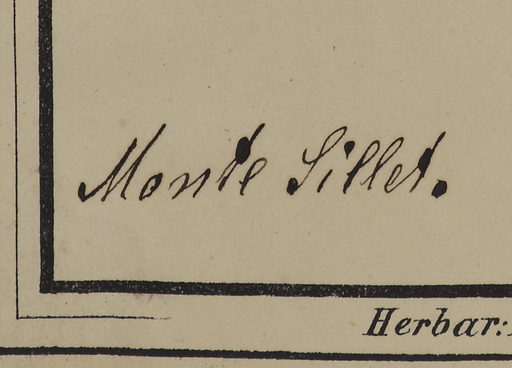 Monte Sillet.
Herbar: